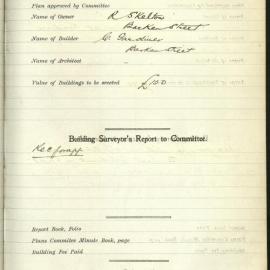 Plan approved by Committee
Name of Owner R Skelton
Barker Street
Name of Builder C. Gardiner
Barker Street
Name of Architect
Value of Buildings to be erected £100
Building Surveyor's Report to Committee.
Report Book, Folio
Plans Committee Minute Book, page
Building Fee Paid